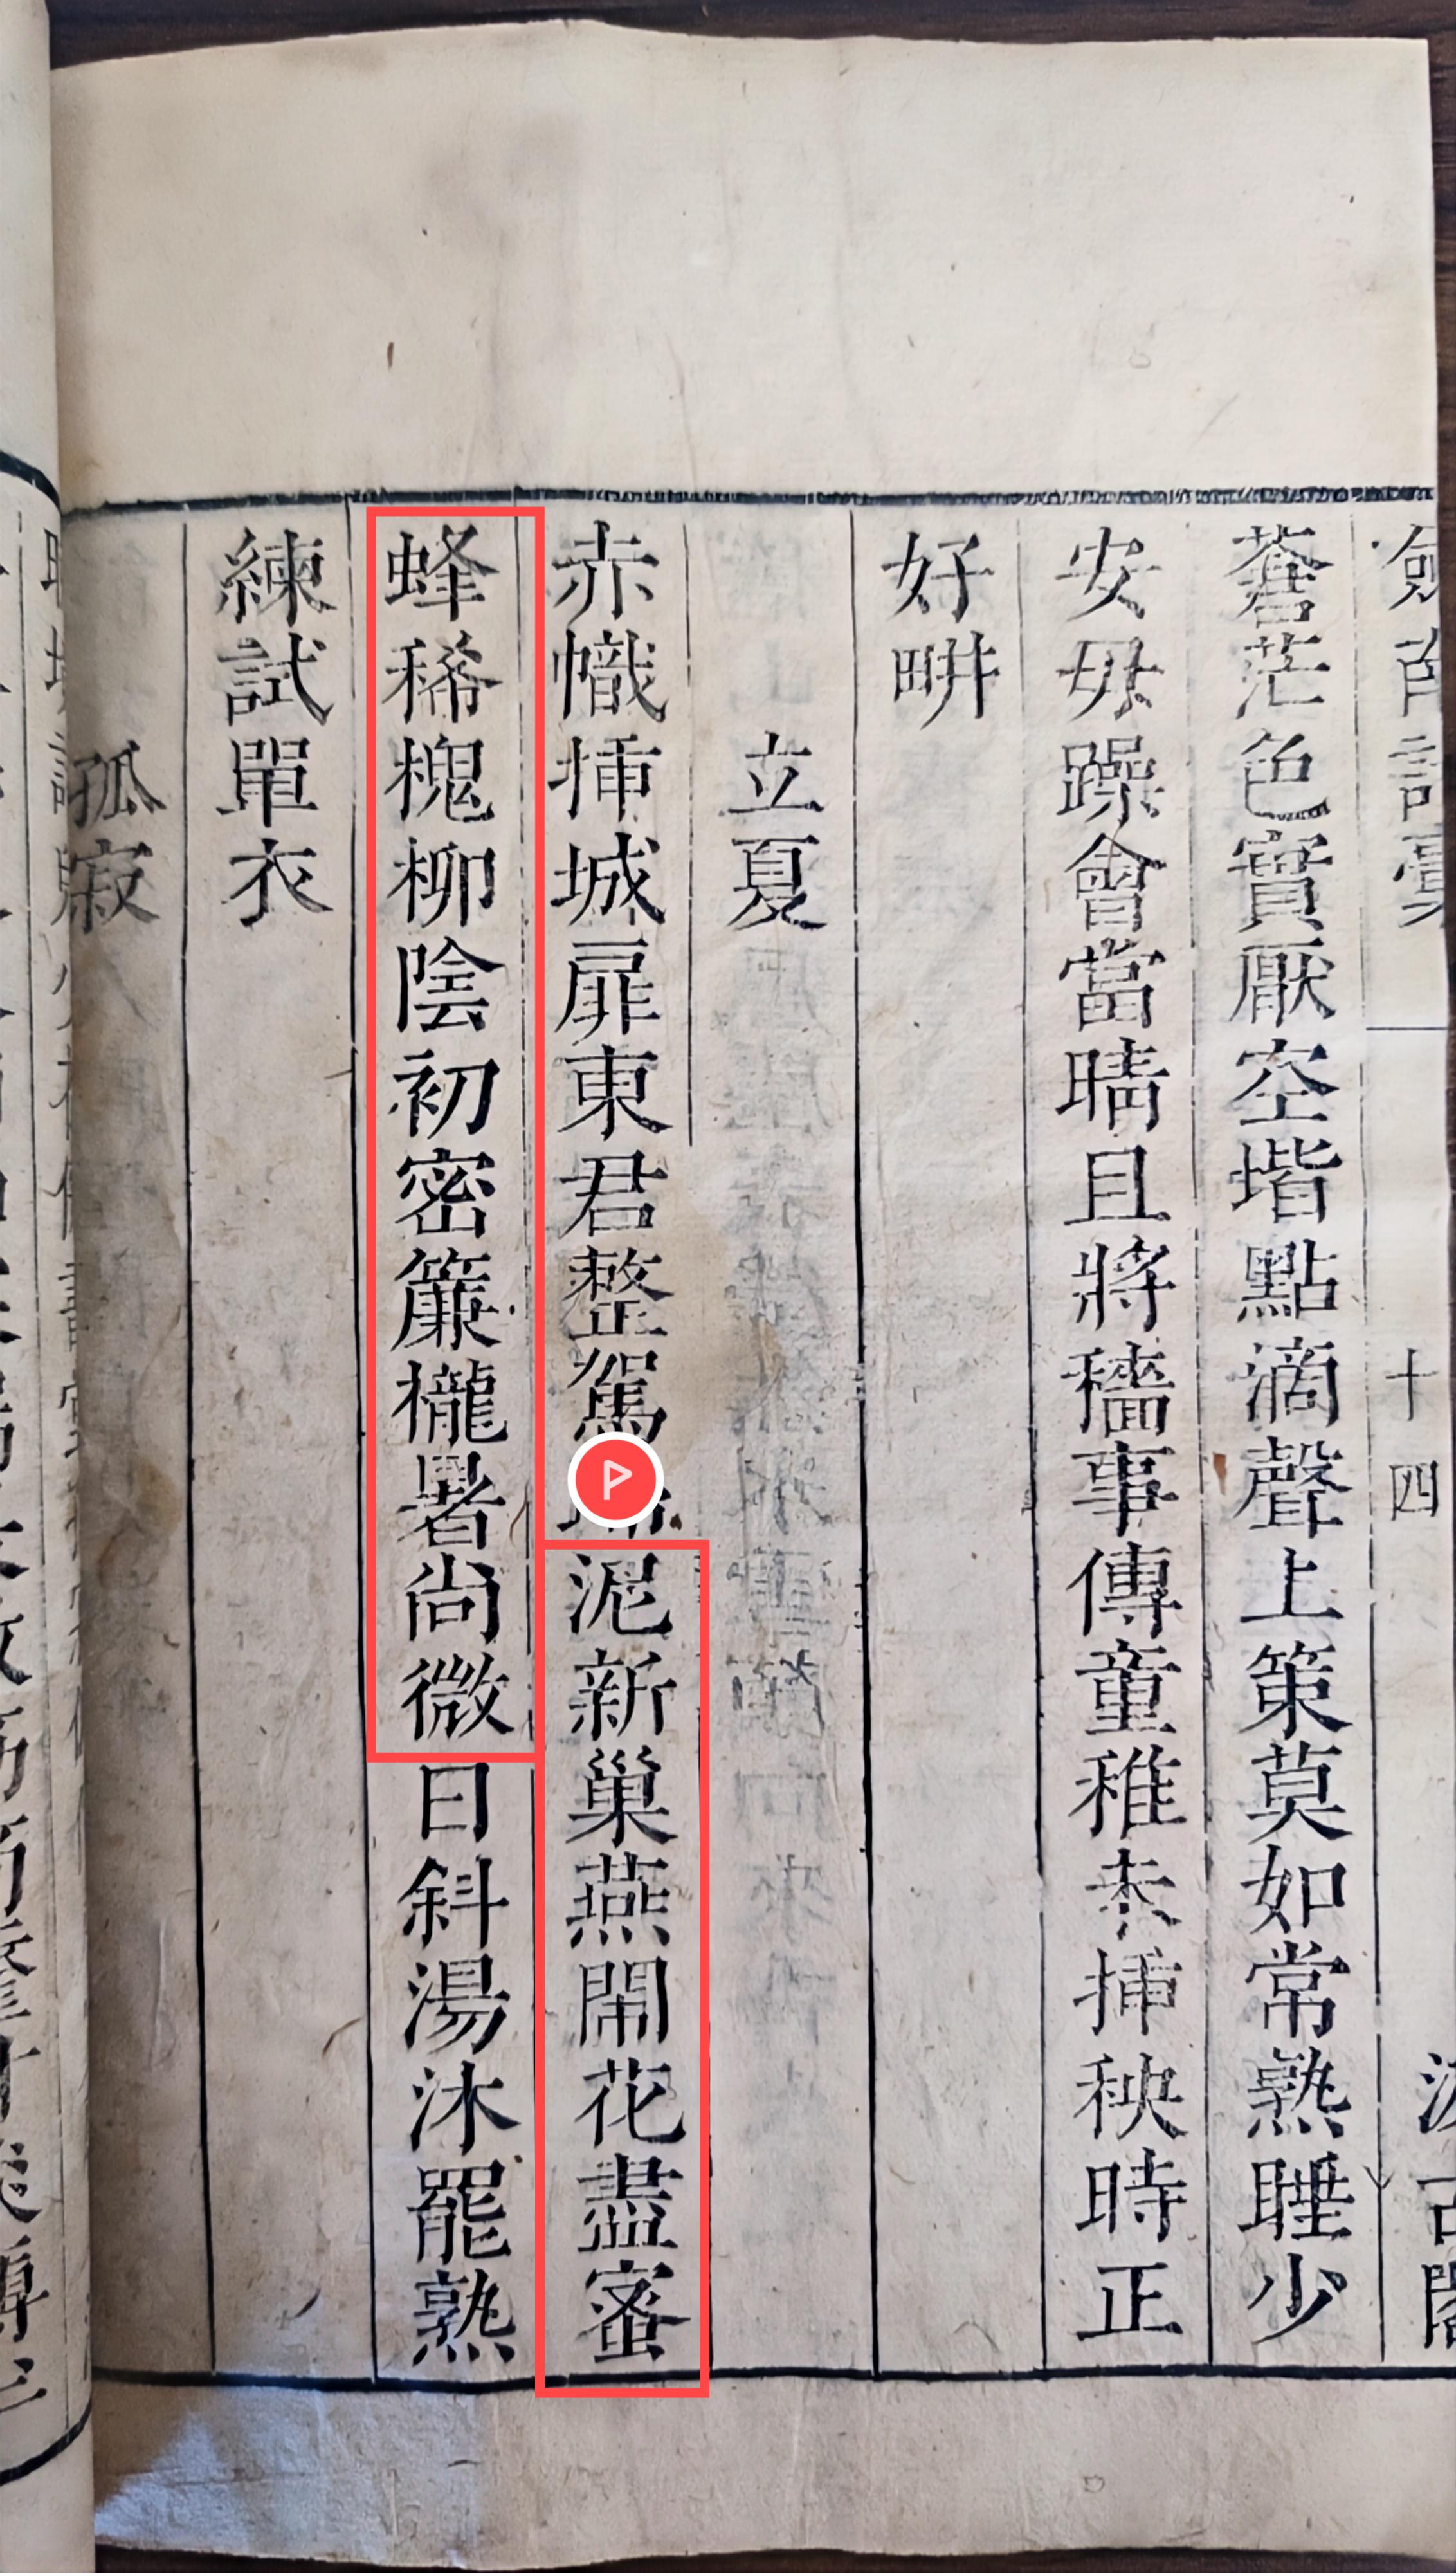 劍南詩稾
十四
汲古閣
蒼茫色實厭空堦點滴聲上策莫如常熟睡少
安毋躁會當晴且將穡事傳童稚麥揷秧時正
好畊
立夏
赤幟揷城扉東君整駕
泥新巢燕閙花盡蜜
蜂稀槐柳陰初密簾櫳暑尚微日斜湯沐罷熟
練試單衣
孤寂